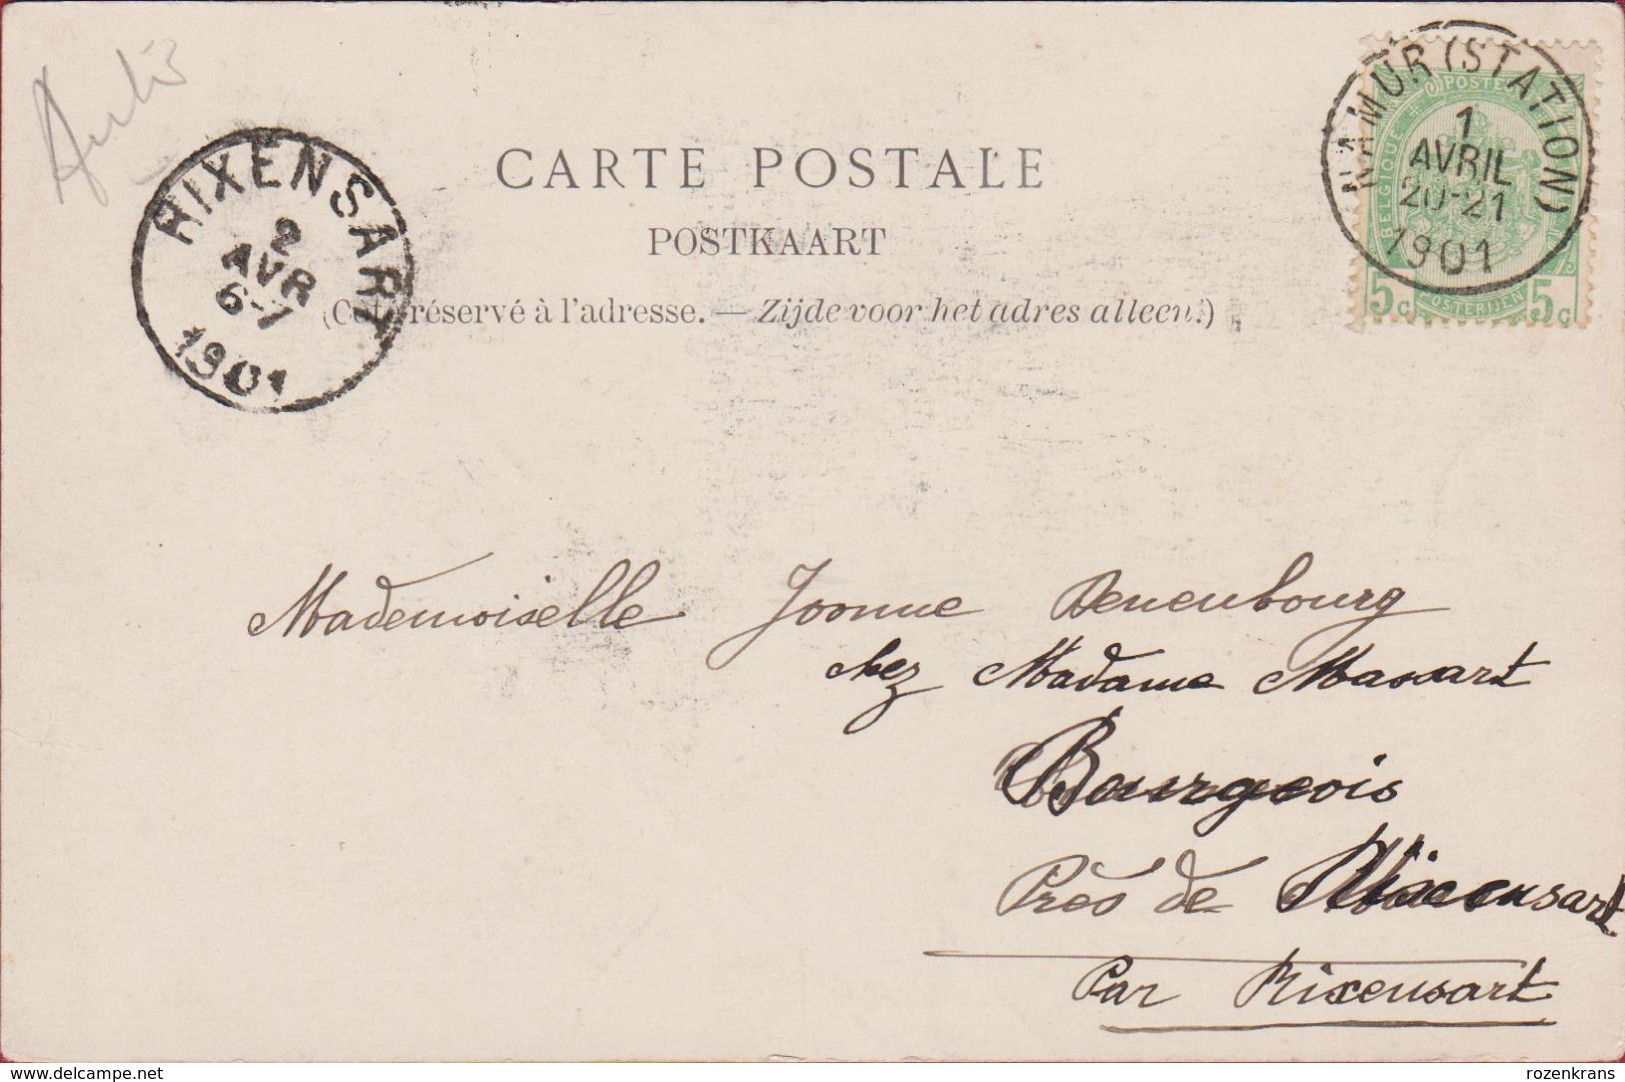 NAMUR (STATION)
1
AVRIL
20-21
1901
POSTE
BELGIQUE
5c POSTERIJEN 5c
RIXENSART
2
AVR
6-7
1901
CARTE POSTALE
POSTKAART
(Côté réservé à l'adresse. — Zijde voor het adres alleen.)
Mademoiselle Yvonne Denenbourg
chez Madame Massart
Bourgeois
Près de Rixensart
Par Rixensart
delcampe.net
rozenkrans